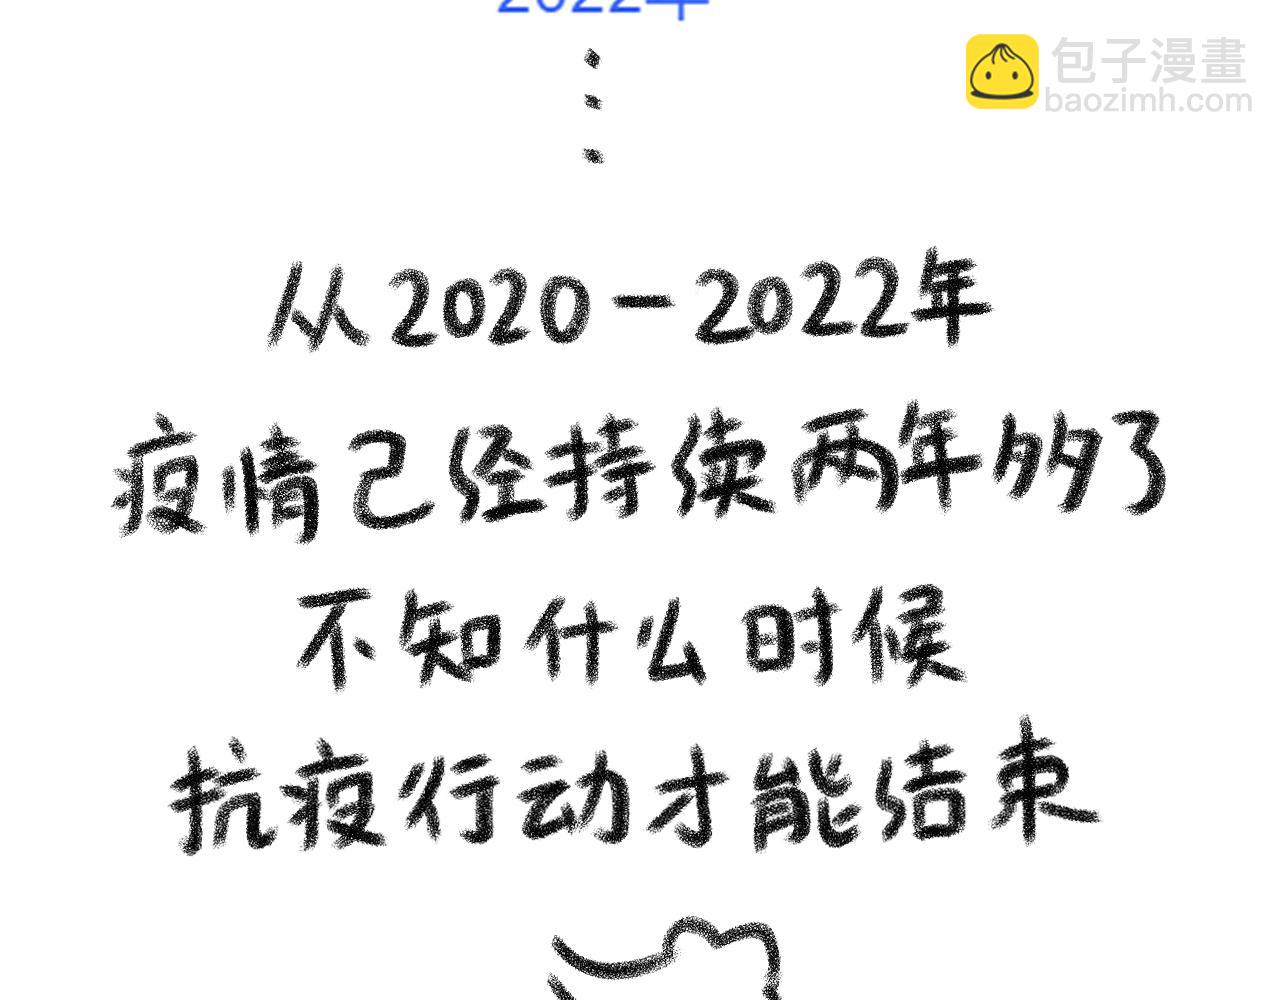 2022年
包子漫畫
baozimh.com
从2020-2022年
疫情己经持续两年多了
不知什么时候
抗疫行动才能结束